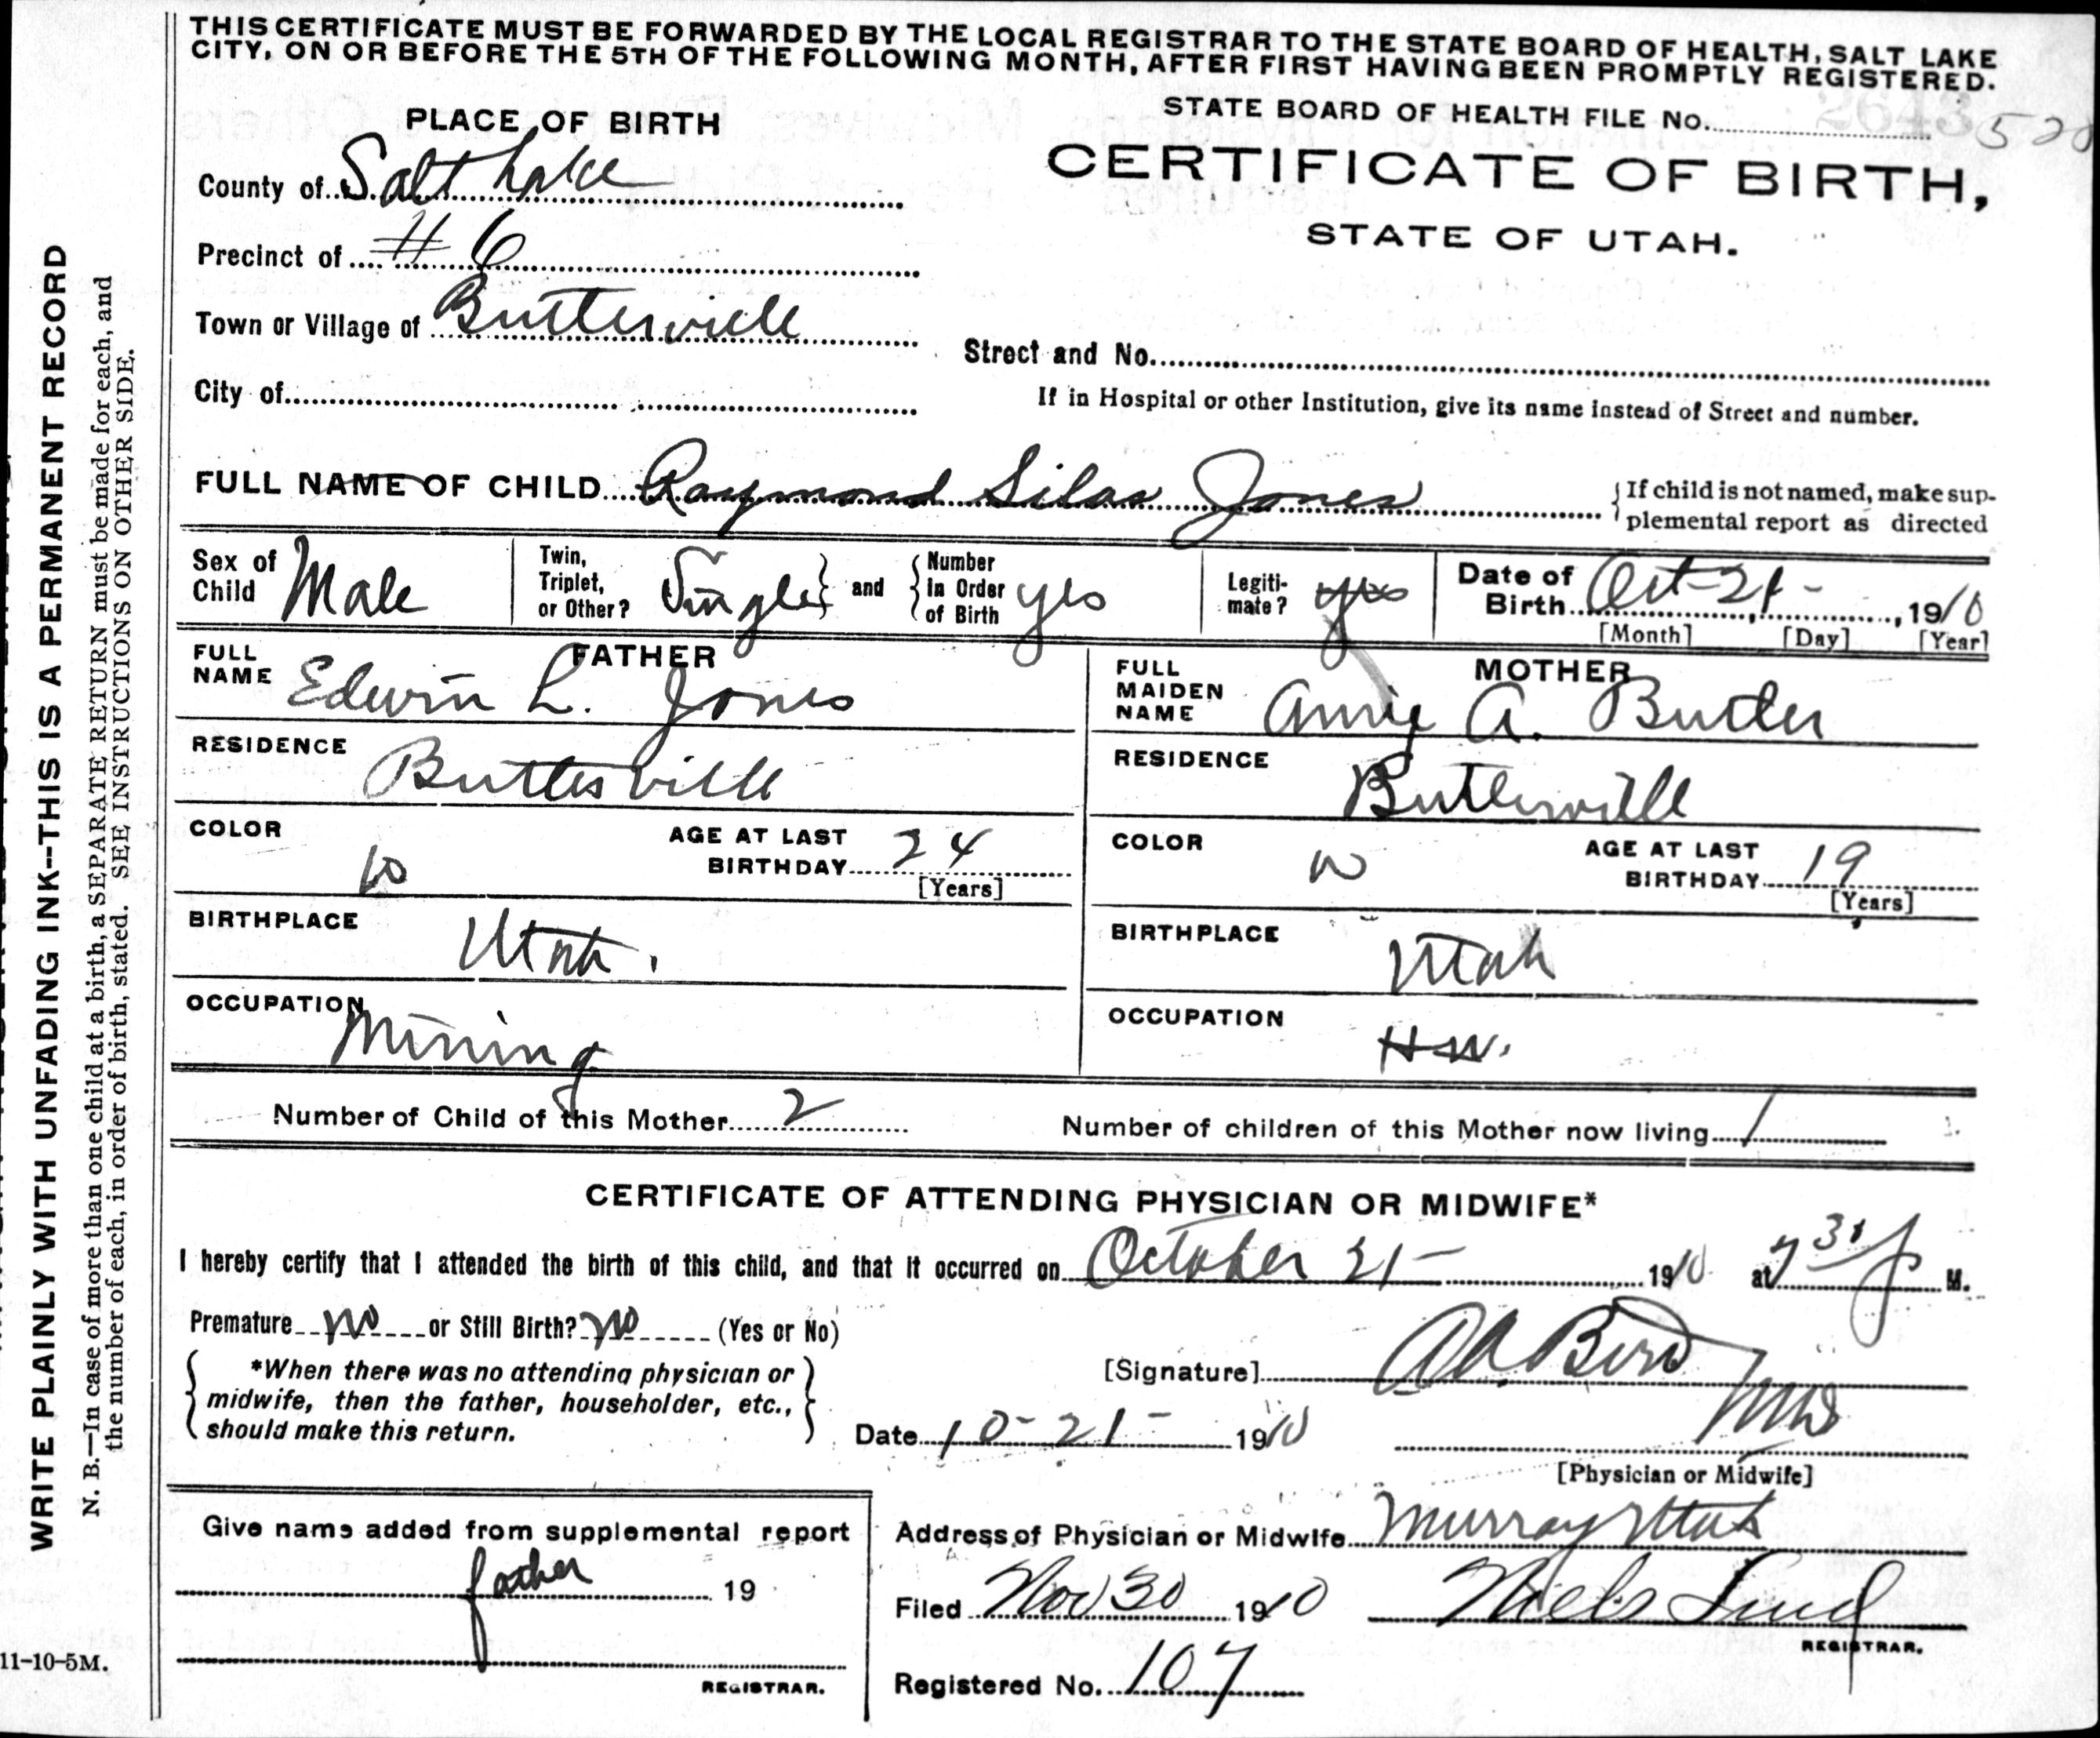 THIS CERTIFICATE MUST BE FORWARDED BY THE LOCAL REGISTRAR TO THE STATE BOARD OF HEALTH, SALT LAKE
CITY, ON OR BEFORE THE 5TH OF THE FOLLOWING MONTH, AFTER FIRST HAVING BEEN PROMPTLY REGISTERED.
PLACE OF BIRTH
STATE BOARD OF HEALTH FILE No. 2643 520
County of Salt Lake
CERTIFICATE OF BIRTH,
STATE OF UTAH.
Precinct of # 6
Town or Village of Butlerville
Street and No.
City of
If in Hospital or other Institution, give its name instead of Street and number.
FULL NAME OF CHILD Raymond Silas Jones
If child is not named, make sup-
plemental report as directed
Sex of Child Male
Twin, Triplet, or Other? Single and Number In Order of Birth yes
Legiti-mate? yes
Date of Birth Oct-21- , 1910
[Month] [Day] [Year]
FATHER
FULL NAME Edwin L. Jones
MOTHER
FULL MAIDEN NAME Annie A. Butler
RESIDENCE Butlerville
RESIDENCE Butlerville
COLOR W AGE AT LAST BIRTHDAY 24 [Years]
COLOR W AGE AT LAST BIRTHDAY 19 [Years]
BIRTHPLACE Utah.
BIRTHPLACE Utah
OCCUPATION Mining
OCCUPATION H W.
Number of Child of this Mother 2
Number of children of this Mother now living 1
CERTIFICATE OF ATTENDING PHYSICIAN OR MIDWIFE*
I hereby certify that I attended the birth of this child, and that it occurred on October 21- 1910 at 7 30 p M.
Premature no or Still Birth? no (Yes or No)
*When there was no attending physician or
midwife, then the father, householder, etc.,
should make this return.
[Signature]
Date 10-21- 1910
[Physician or Midwife]
Give name added from supplemental report
father 19
REGISTRAR.
Address of Physician or Midwife Murray Utah
Filed Nov 30 1910 Niels Lind
REGISTRAR.
Registered No. 107
WRITE PLAINLY WITH UNFADING INK--THIS IS A PERMANENT RECORD
N. B.—In case of more than one child at a birth, a SEPARATE RETURN must be made for each, and
the number of each, in order of birth, stated. SEE INSTRUCTIONS ON OTHER SIDE.
11-10-5M.